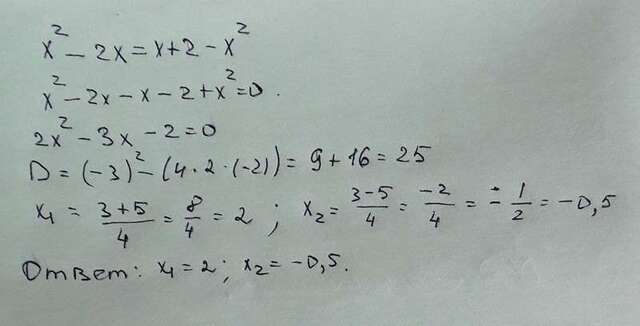 x² - 2x = x + 2 - x²
x² - 2x - x - 2 + x² = 0.
2x² - 3x - 2 = 0
D = (-3)² - (4 · 2 · (-2)) = 9 + 16 = 25
x₁ = (3+5)/4 = 8/4 = 2 ; x₂ = (3-5)/4 = -2/4 = -1/2 = -0,5
Ответ: x₁ = 2; x₂ = -0,5.